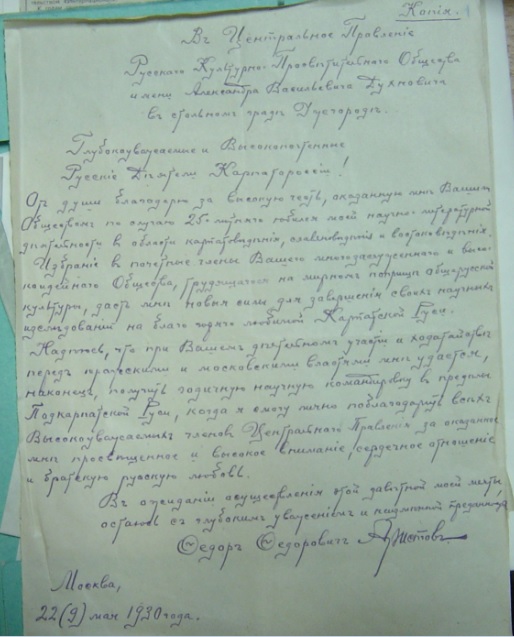 Копія.
Въ Центральное Правленіе
Русскаго Культурно-Просвѣтительнаго Общества
имени Александра Васильевича Духновича
въ стольномъ градѣ Ужгородѣ.
Глубокоуважаемые и Высокопочтенные
Русскіе Дѣятели Карпатороссіи!
Отъ души благодарю за высокую честь, оказанную мнѣ Вашимъ
Обществомъ по случаю 25-лѣтняго юбилея моей научно-литературной
дѣятельности въ области карпатовѣдѣнія, славяновѣдѣнія и востоковѣдѣнія.
Избраніе въ почетные члены Вашего многозаслуженнаго и высо-
коидейнаго Общества, трудящагося на мирномъ поприщѣ общерусской
культуры, дастъ мнѣ новыя силы для завершенія своихъ научныхъ
изслѣдованій на благо горячо любимой Карпатской Руси.
Надѣюсь, что при Вашемъ дѣятельномъ участіи и ходатайствѣ
передъ пражскими и московскими властями мнѣ удастся,
наконецъ, получить годичную научную командировку въ предѣлы
Подкарпатской Руси, когда я смогу лично поблагодарить всѣхъ
Высокоуважаемыхъ членовъ Центральнаго Правленія за оказанное
мнѣ просвѣщенное и высокое вниманіе, сердечное отношеніе
и братскую русскую любовь.
Въ ожиданіи осуществленія этой завѣтной моей мечты,
остаюсь съ глубокимъ уваженіемъ и неизмѣнной преданностью
Ѳедоръ Ѳедоровичъ Аристовъ.
Москва,
22 (9) мая 1930 года.